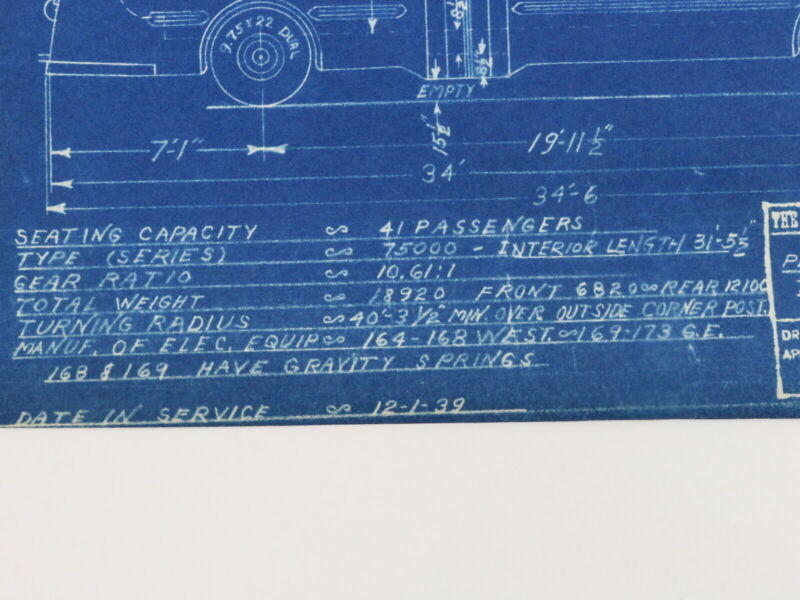 9.75X22 DUAL
EMPTY
15½"
7'-1"
19'-11½"
34'
34'-6
THE
SEATING CAPACITY ∾ 41 PASSENGERS
TYPE (SERIES) ∾ 75000 - INTERIOR LENGTH 31'-5½"
GEAR RATIO ∾ 10.61:1
TOTAL WEIGHT ∾ 18920 FRONT 6820∾REAR 12100
TURNING RADIUS ∾ 40'-3½" MIN. OVER OUTSIDE CORNER POST.
MANUF. OF ELEC. EQUIP ∾ 164-168 WEST.∾169-173 G.E.
168 & 169 HAVE GRAVITY SPRINGS
DATE IN SERVICE ∾ 12-1-39
DR
AP